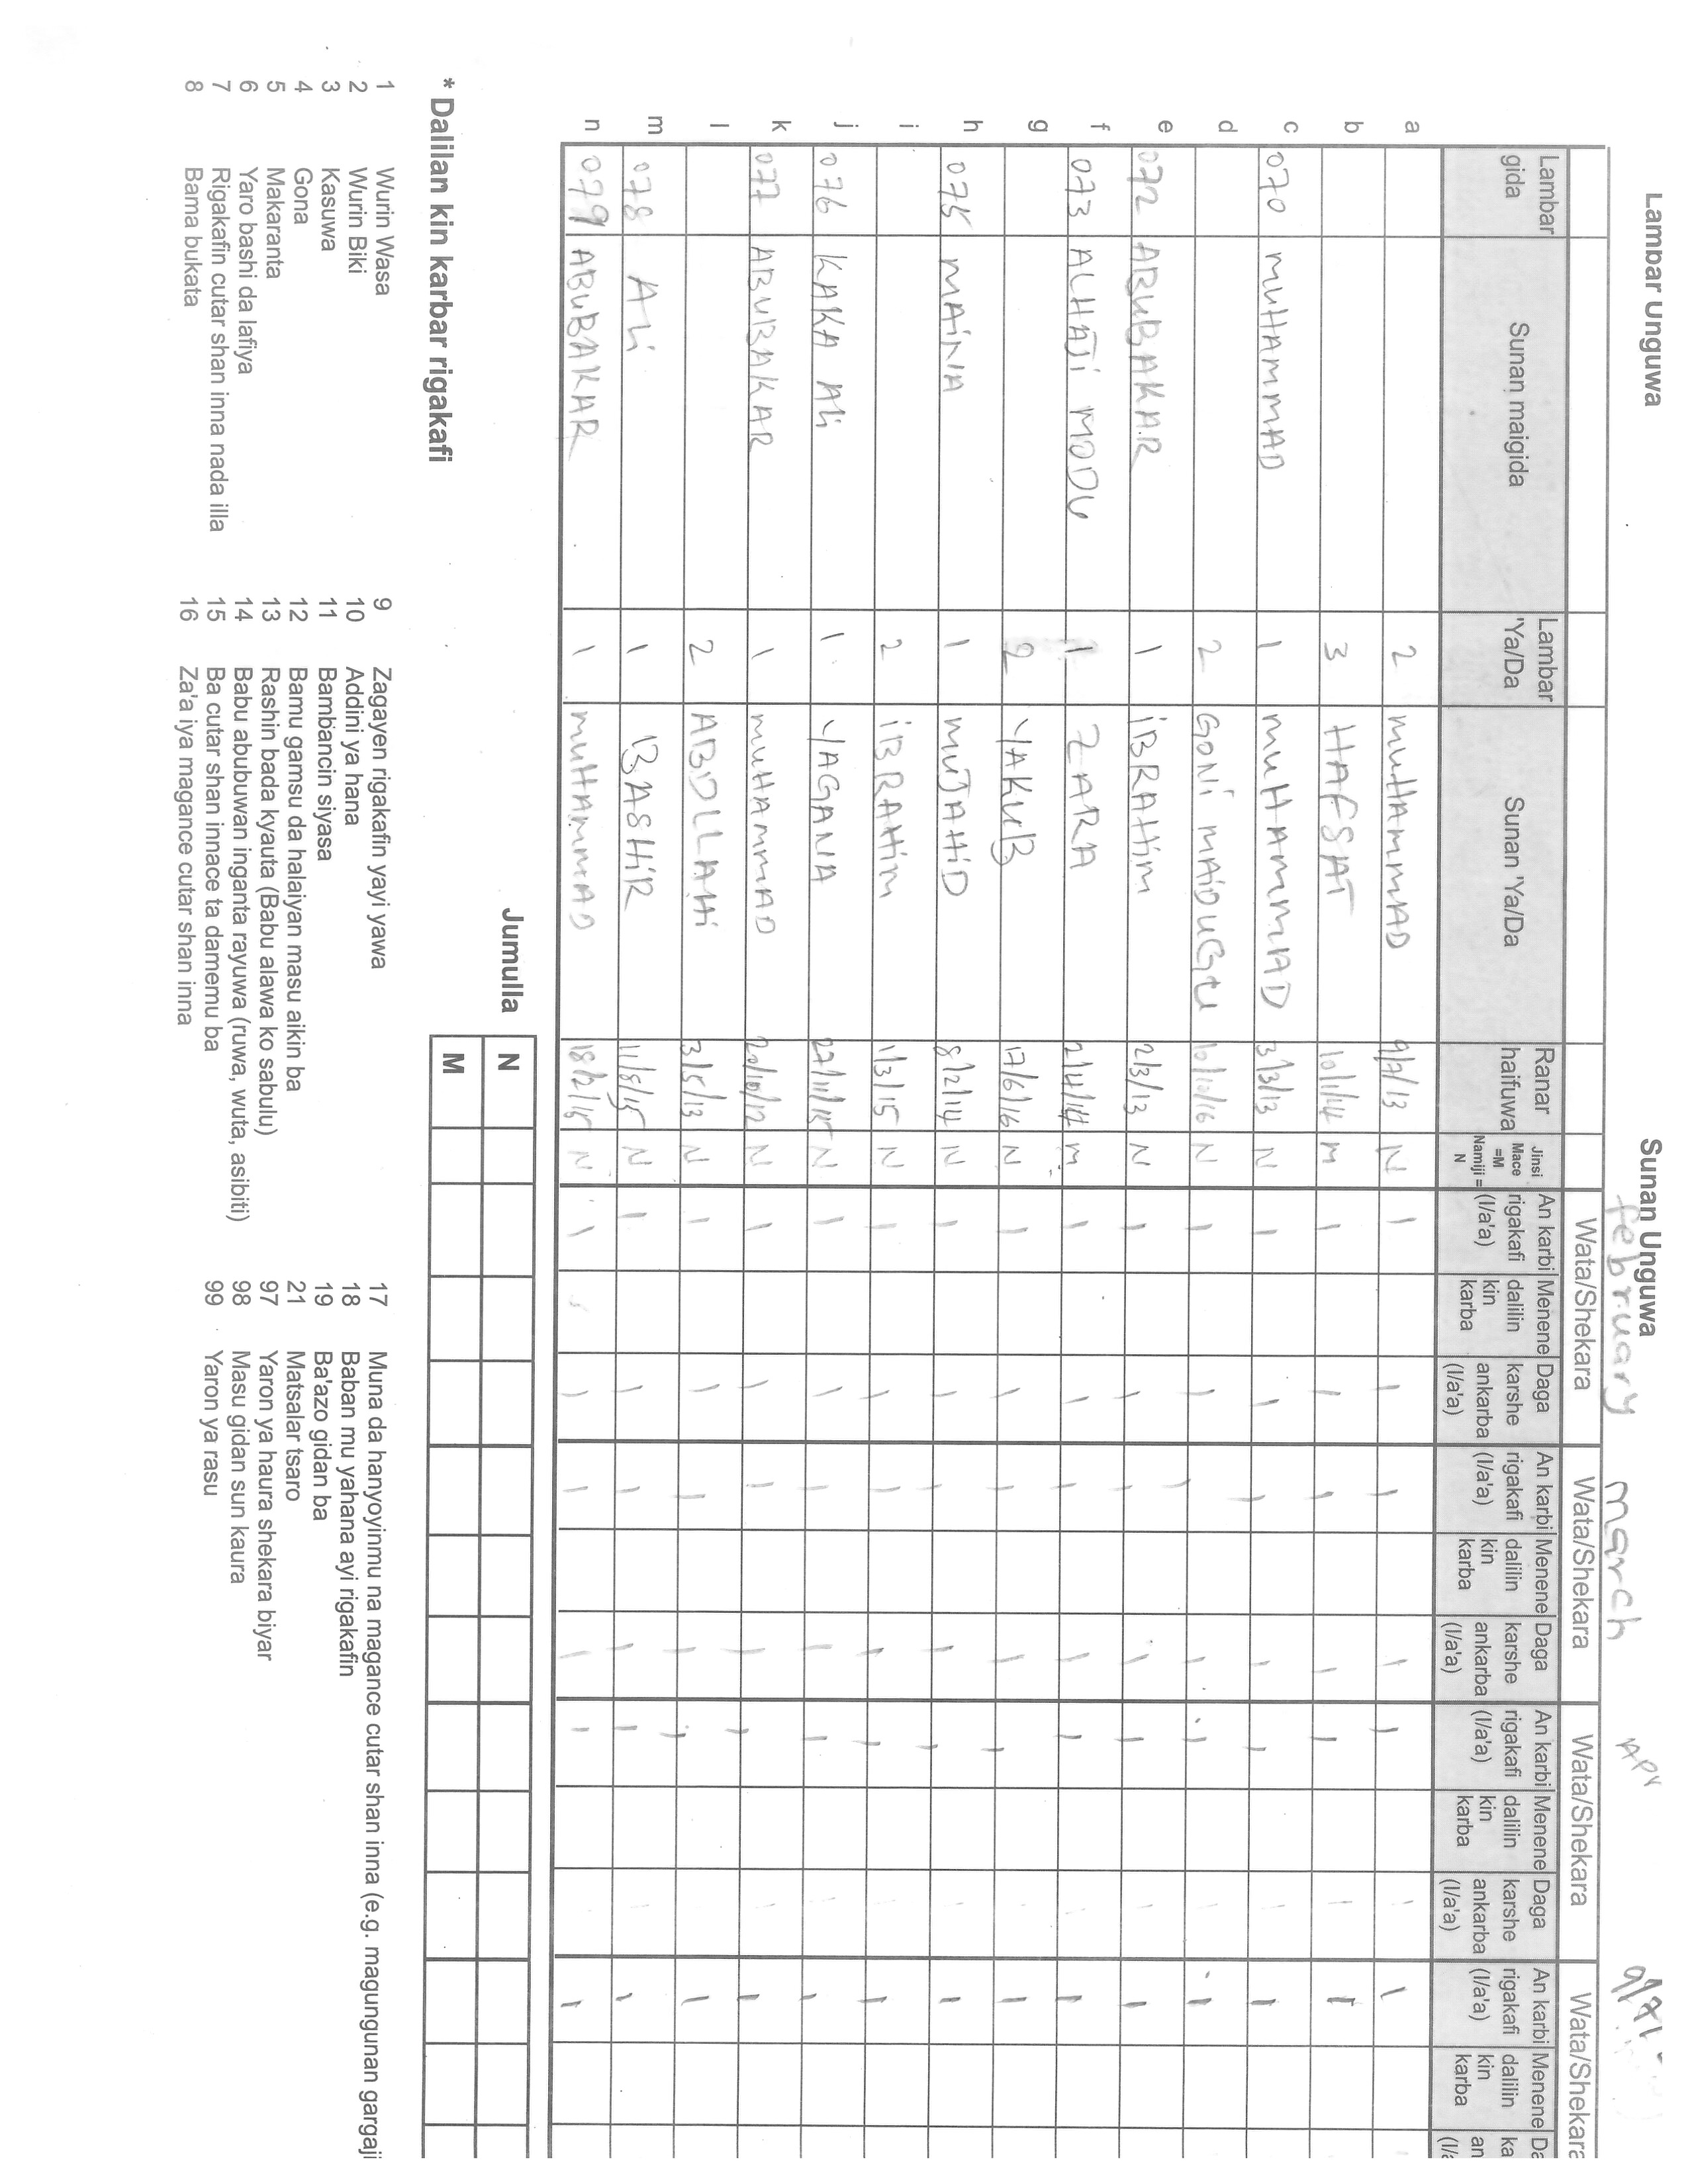 Lambar Unguwa
Sunan Unguwa
february march Apr
Wata/Shekara Wata/Shekara Wata/Shekara Wata/Shekara
Lambar gida Sunan maigida Lambar 'Ya/Da Sunan 'Ya/Da Ranar haifuwa Jinsi Mace =M Namiji = N An karbi rigakafi (I/a'a) Menene dalilin kin karba Daga karshe ankarba (I/a'a) An karbi rigakafi (I/a'a) Menene dalilin kin karba Daga karshe ankarba (I/a'a) An karbi rigakafi (I/a'a) Menene dalilin kin karba Daga karshe ankarba (I/a'a) An karbi rigakafi (I/a'a) Menene dalilin kin karba Da ka an (I/
a 2 MUHAMMAD 9/7/13 N I I I I I I I
b 3 HAFSAT 10/1/14 M I I I I I I I
c 070 MUHAMMAD 1 MUHAMMAD 3/3/13 N I I I I I I I
d 2 GONI MAIDUGU 10/10/16 N I I I I I I I
e 072 ABUBAKAR 1 IBRAHIM 2/3/13 N I I I I I I I
f 073 ALHAJI MODU 1 ZARA 2/4/14 M I I I I I I I
g 2 YAKUB 17/6/16 N I I I I I I I
h 075 MAINA 1 MUJAHID 8/2/14 N I I I I I I I
i 2 IBRAHIM 1/3/15 N I I I I I I I
j 076 KAKA ALI 1 YAGANA 27/11/15 N I I I I I I I
k 077 ABUBAKAR 1 MUHAMMAD 20/10/12 N I I I I I I I
l 2 ABDLLAHI 3/5/13 N I I I I I I I
m 078 ALI 1 BASHIR 11/8/15 N I I I I I I I
n 079 ABUBAKAR 1 MUHAMMAD 18/2/15 N I I I I I I I
Jumulla N
M
* Dalilan kin karbar rigakafi
1 Wurin Wasa
2 Wurin Biki
3 Kasuwa
4 Gona
5 Makaranta
6 Yaro bashi da lafiya
7 Rigakafin cutar shan inna nada illa
8 Bama bukata
9 Zagayen rigakafin yayi yawa
10 Addini ya hana
11 Bambancin siyasa
12 Bamu gamsu da halaiyan masu aikin ba
13 Rashin bada kyauta (Babu alawa ko sabulu)
14 Babu abubuwan inganta rayuwa (ruwa, wuta, asibiti)
15 Ba cutar shan innace ta damemu ba
16 Za'a iya magance cutar shan inna
17 Muna da hanyoyinmu na magance cutar shan inna (e.g. magungunan gargaji
18 Baban mu yahana ayi rigakafin
19 Ba'azo gidan ba
21 Matsalar tsaro
97 Yaron ya haura shekara biyar
98 Masu gidan sun kaura
99 Yaron ya rasu